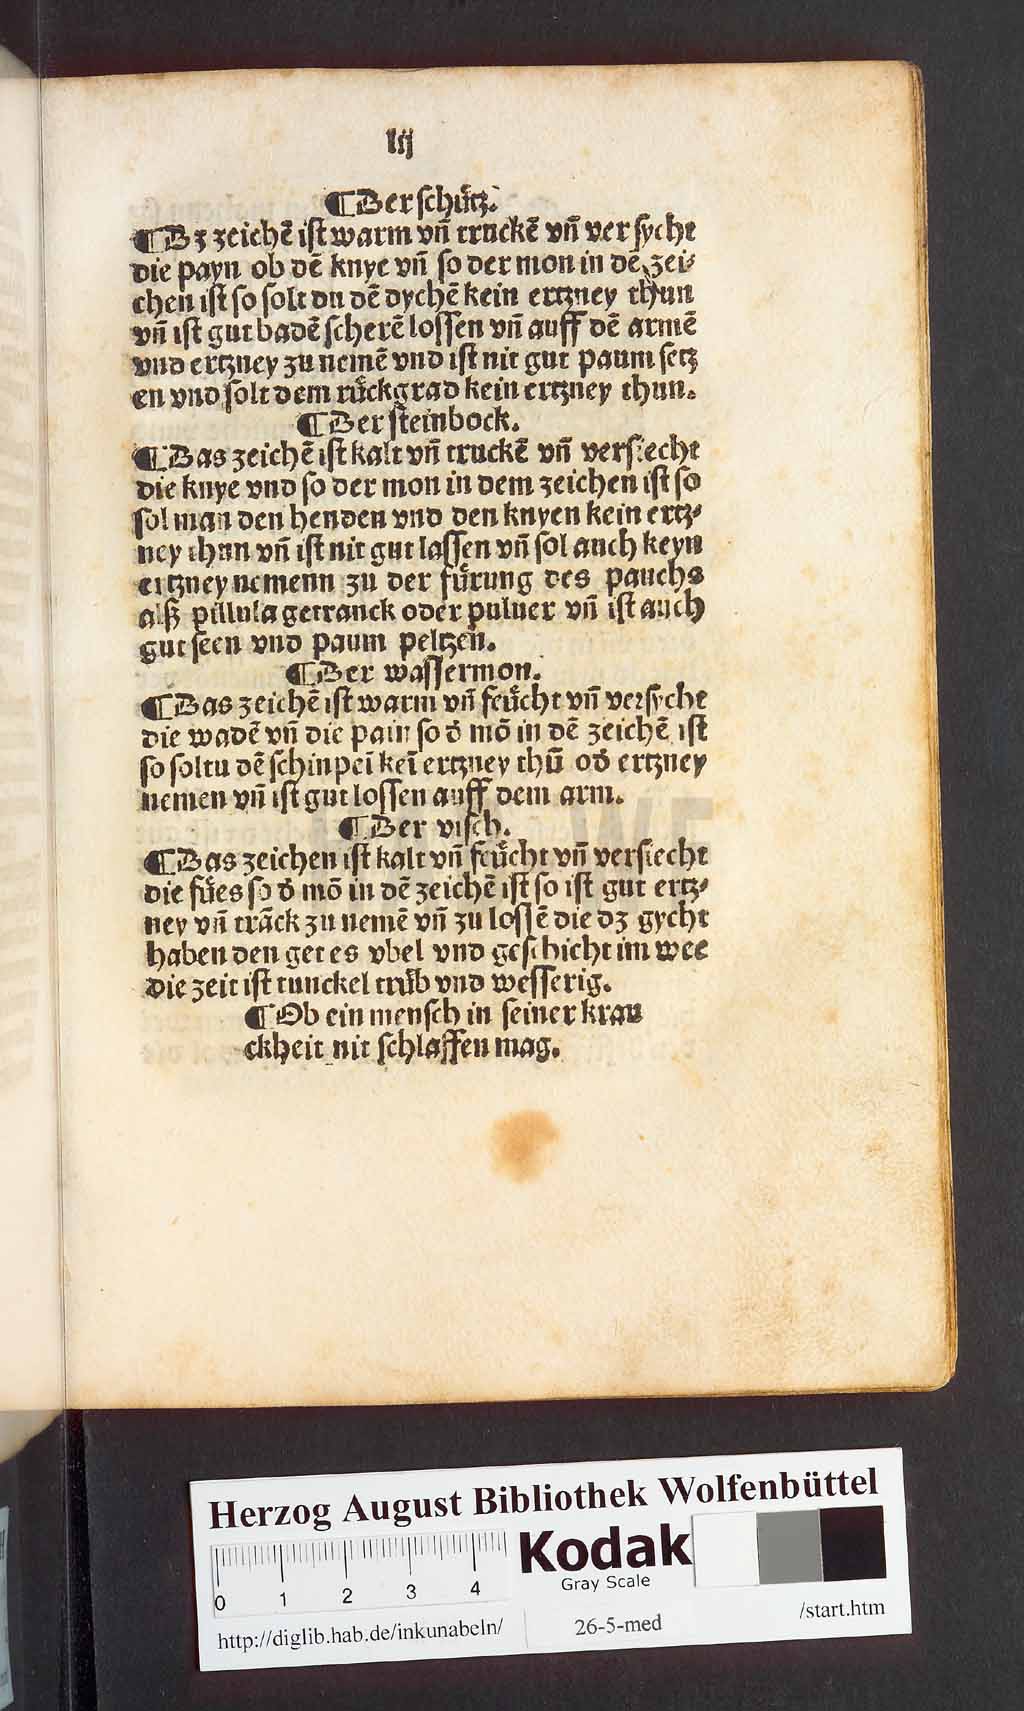 lij
¶Der schütz.
¶Dz zeichē ist warm vn̄ truckē vn̄ versycht
die payn ob dē knye vn̄ so der mon in dē zei⸗
chen ist so solt du dē dychē kein ertzney thun
vn̄ ist gut badē scherē lossen vn̄ auff dē armē
vnd ertzney zu nemē vnd ist nit gut paum setz
en vnd solt dem rückgrad kein ertzney thun.
¶Der steinbock.
¶Das zeichē ist kalt vn̄ truckē vn̄ versiecht
die knye vnd so der mon in dem zeichen ist so
sol man den henden vnd den knyen kein ertz⸗
ney thun vn̄ ist nit gut lassen vn̄ sol auch keyn
ertzney nemenn zu der fürung des pauchs
alß pillula getranck oder puluer vn̄ ist auch
gut seen vnd paum peltzen.
¶Der wassermon.
¶Das zeichē ist warm vn̄ feücht vn̄ versycht
die wadē vn̄ die pain so d̄ mō in dē zeichē ist
so soltu dē schinpeī keī ertzney thū od̄ ertzney
nemen vn̄ ist gut lossen auff dem arm.
¶Der visch.
¶Das zeichen ist kalt vn̄ feücht vn̄ versiecht
die fües so d̄ mō in dē zeichē ist so ist gut ertz⸗
ney vn̄ trāck zu nemē vn̄ zu lossē die dz gycht
haben den get es vbel vnd geschicht im wee
die zeit ist tunckel trüb vnd wesserig.
¶Ob ein mensch in seiner kran
ckheit nit schlaffen mag.
Herzog August Bibliothek Wolfenbüttel
0 1 2 3 4
Kodak
Gray Scale
http://diglib.hab.de/inkunabeln/ 26-5-med /start.htm